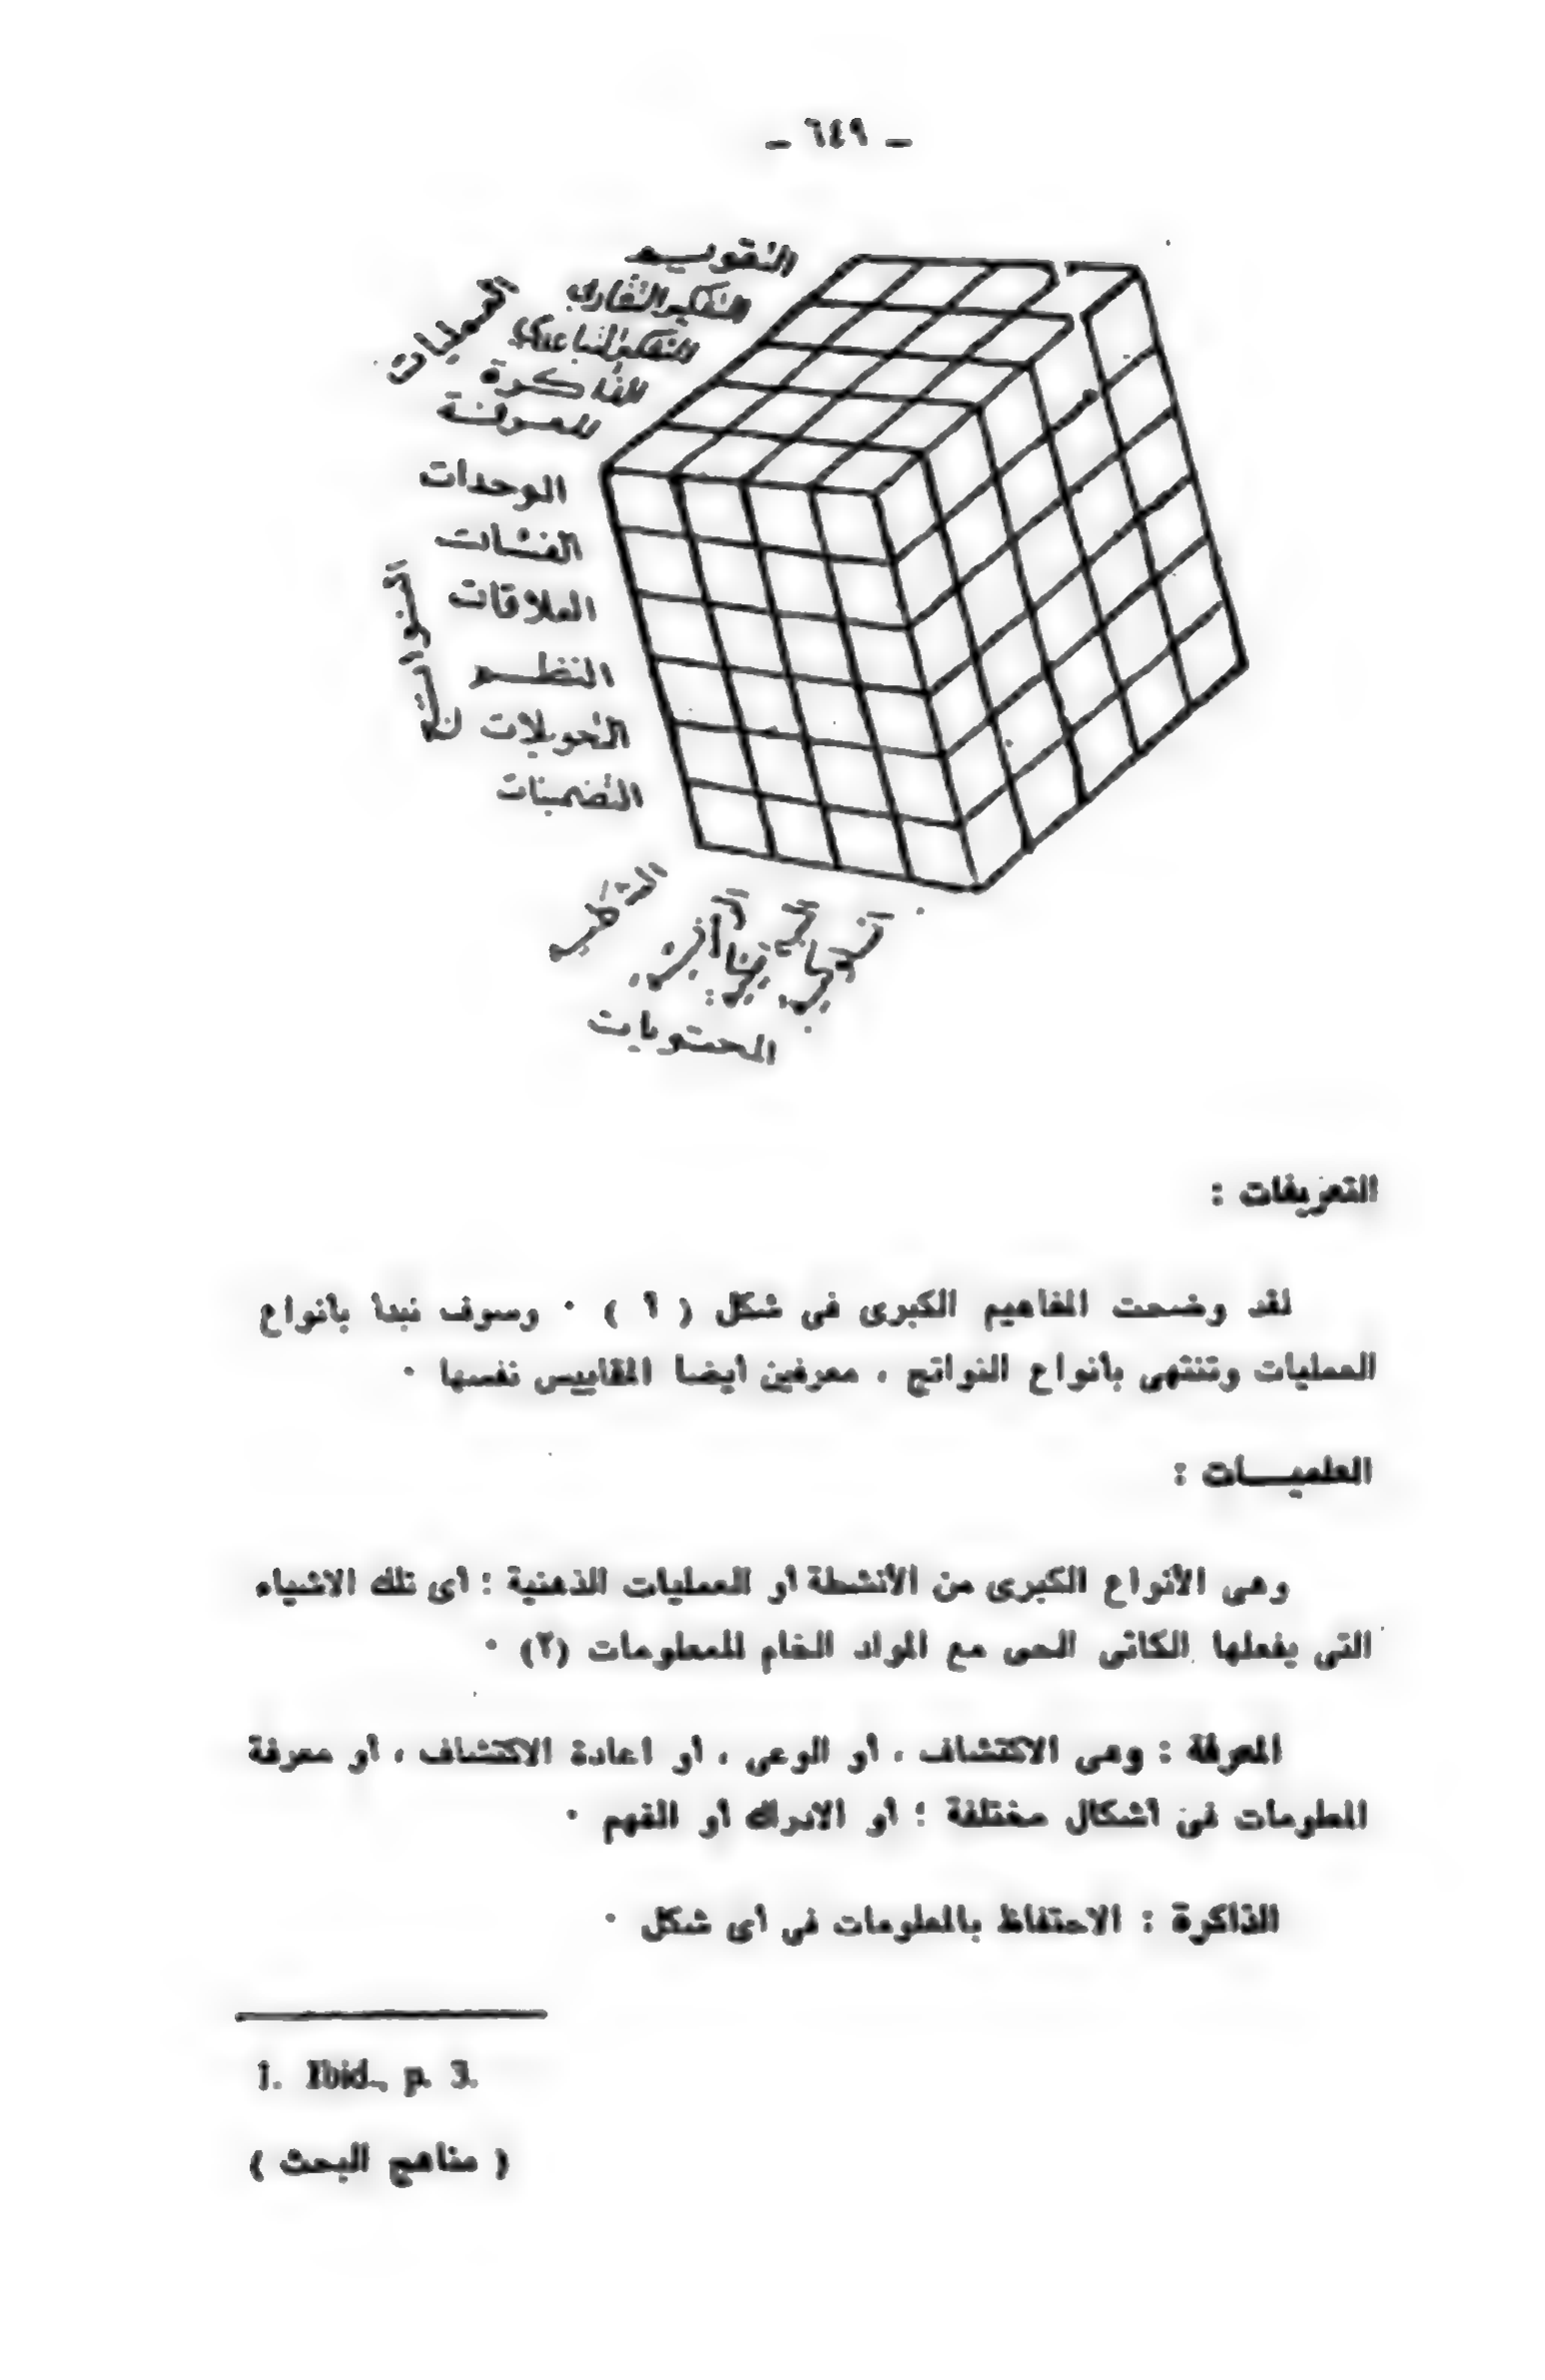 ـ ٦٤٩ ـ
التقويم
التفكير التقاربي
التفكير التباعدي
الذاكرة
المعرفة
العمليات
الوحدات
الفئات
العلاقات
النظم
التحويلات
التضمينات
النواتج
الشكل
المحتويات
التعريفات :
لقد وضحت المفاهيم الكبرى فى شكل ( ٩ ) ٠ وسوف نبدأ بأنواع
العمليات وتنتهى بأنواع النواتج ، معرفين أيضا المقاييس نفسها ٠
العلميـــات :
وهى الأنواع الكبرى من الأنشطة أو العمليات الذهنية : أى تلك الاشياء
التى يفعلها الكائى الحى مع المواد الخام للمعلومات (٢) ٠
المعرفة : وهى الاكتشاف ، أو الوعى ، أو اعادة الاكتشاف ، أو معرفة
المعلومات فى أشكال مختلفة ؛ أو الادراك أو الفهم ٠
الذاكرة : الاحتفاظ بالمعلومات فى أى شكل ٠
1. Ibid., p. 3.
( مناهج البحث )